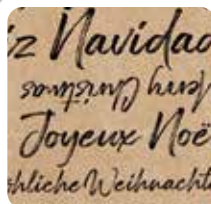 iz Navidad
erry Christmas
Joyeux Noë
hliche Weihnacht